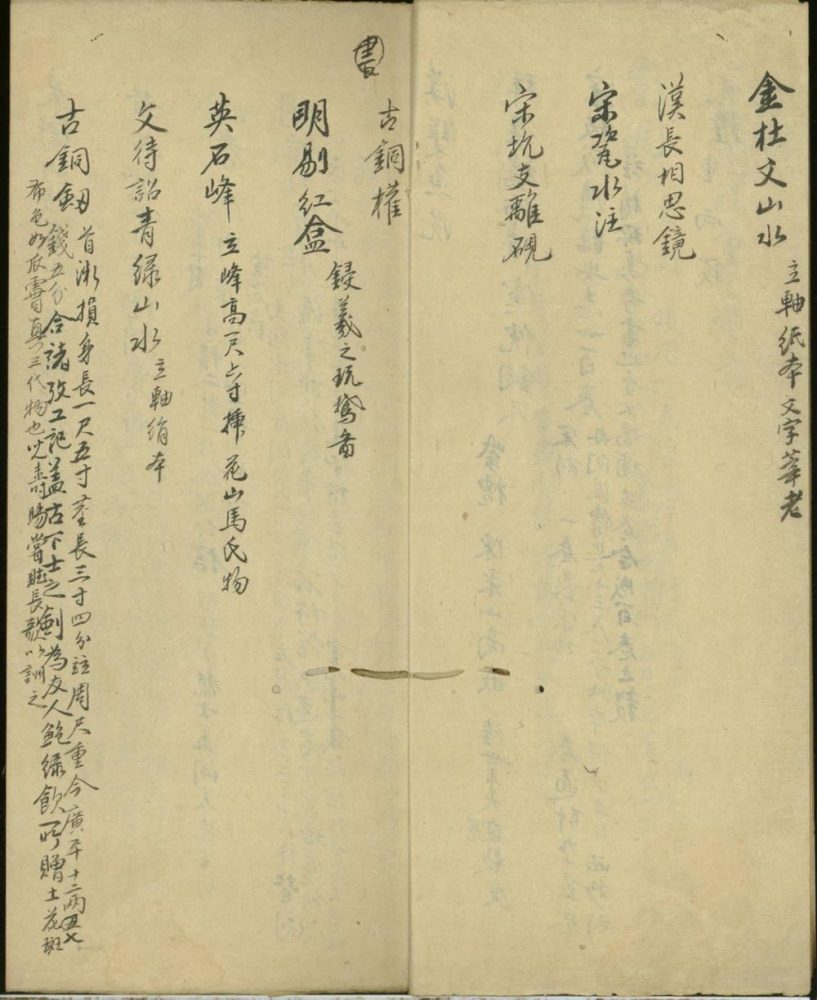 金杜文山水 立軸紙本 文字莘老
漢長相思鏡
宋瓷水注
宋坑支離硯
書
古銅權
明剔紅盒 錽羲之玩鵞图
英石峰 立峰高一尺六寸 揀花山馬氏物
文待詔青綠山水 立軸絹本
古銅劔 首漸損身長一尺五寸莖長三寸四分註周尺重今廣平十二兩
錢五分合諸攷工記蓋古下士之劍為友人鮑綠飲所贈土花斑
布色如瓜靈真三代物也 壽暘嘗賦長歌以訓之